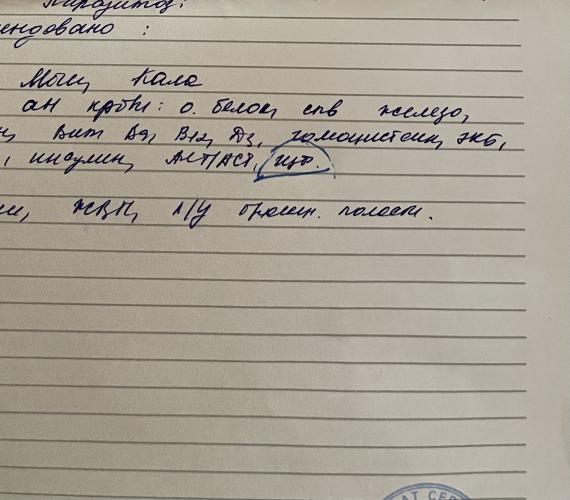 Паразитоз:
ендовано :
Мочи, Кала
ан крови: о. белок, спв железо,
Вит В9, В12, Д3, гомоцистеин, экб,
, инсулин, АЛТ/АСТ, щф.
ЖВП, л/у брюшн. полости.
АТ СЕР